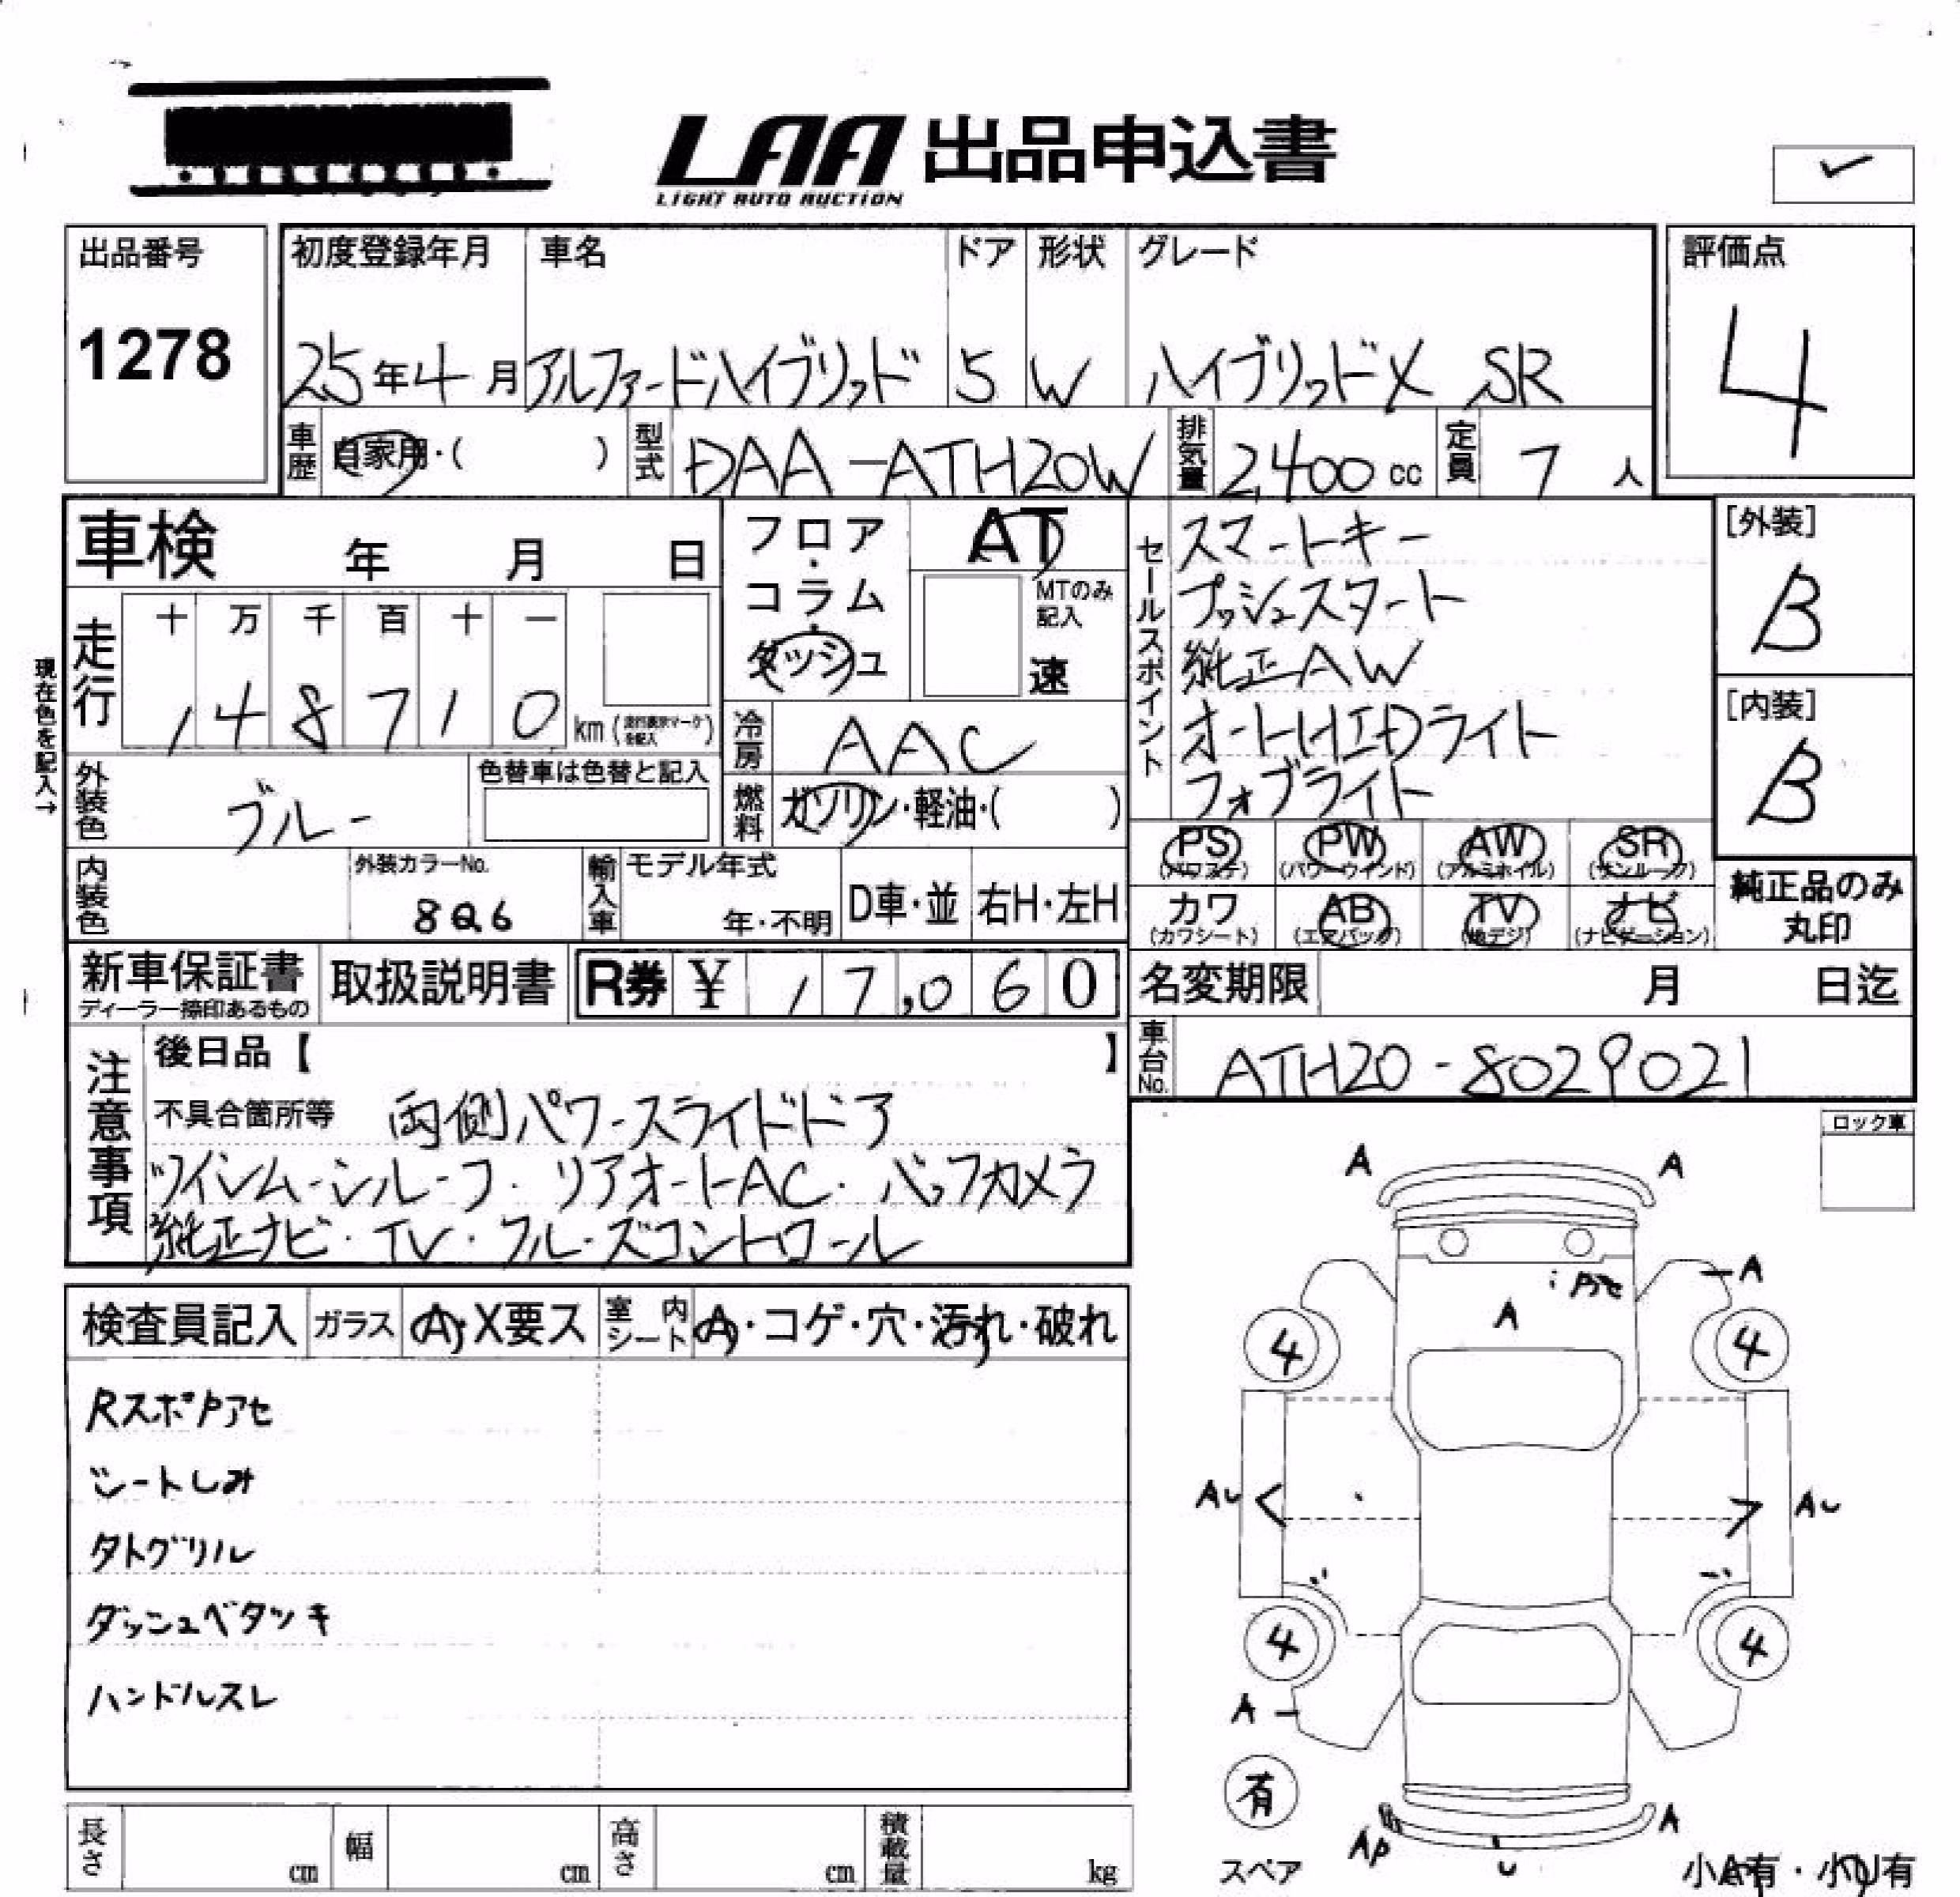 LAA 出品申込書
LIGHT AUTO AUCTION
✓
出品番号
1278
初度登録年月
25年4月
車名
アルファードハイブリッド
ドア
5
形状
W
グレード
ハイブリッドX SR
評価点
4
車歴 自家用・( )
型式 DAA-ATH20W
排気量 2,400 cc
定員 7 人
車検 年 月 日
現在色を記入→
走行
十 万 千 百 十 一
1 4 8 7 1 0 km (走行表示マークを記入)
フロア・コラム・ダッシュ
AT
MTのみ記入
速
冷房 AAC
燃料 ガソリン・軽油・( )
外装色 ブルー
色替車は色替と記入
内装色
外装カラーNo.
8Q6
輸入車
モデル年式
年・不明
D車・並
右H・左H
セールスポイント
スマートキー
プッシュスタート
純正AW
オートHIDライト
フォブライト
[外装]
B
[内装]
B
PS (パワステ)
PW (パワーウインド)
AW (アルミホイル)
SR (サンルーフ)
カワ (カワシート)
AB (エアバッグ)
TV (地デジ)
ナビ (ナビゲーション)
純正品のみ丸印
新車保証書
ディーラー捺印あるもの
取扱説明書
R券 ¥ 17,060
名変期限 月 日迄
車台No. ATH20-8029021
注意事項
後日品【 】
不具合箇所等 両側パワースライドドア
ツインムーンルーフ・リアオートAC・バックカメラ
純正ナビ・TV・クルーズコントロール
検査員記入
ガラス A・X要ス
室内シート A・コゲ・穴・汚れ・破れ
RスポPアセ
シートしみ
タトグリル
ダッシュベタツキ
ハンドルスレ
ロック車
A A
Pアセ A
A
4 4
AU AU
4 4
A
有
スペア
AP U A
小A有・小U有
長さ cm
幅 cm
高さ cm
積載量 kg